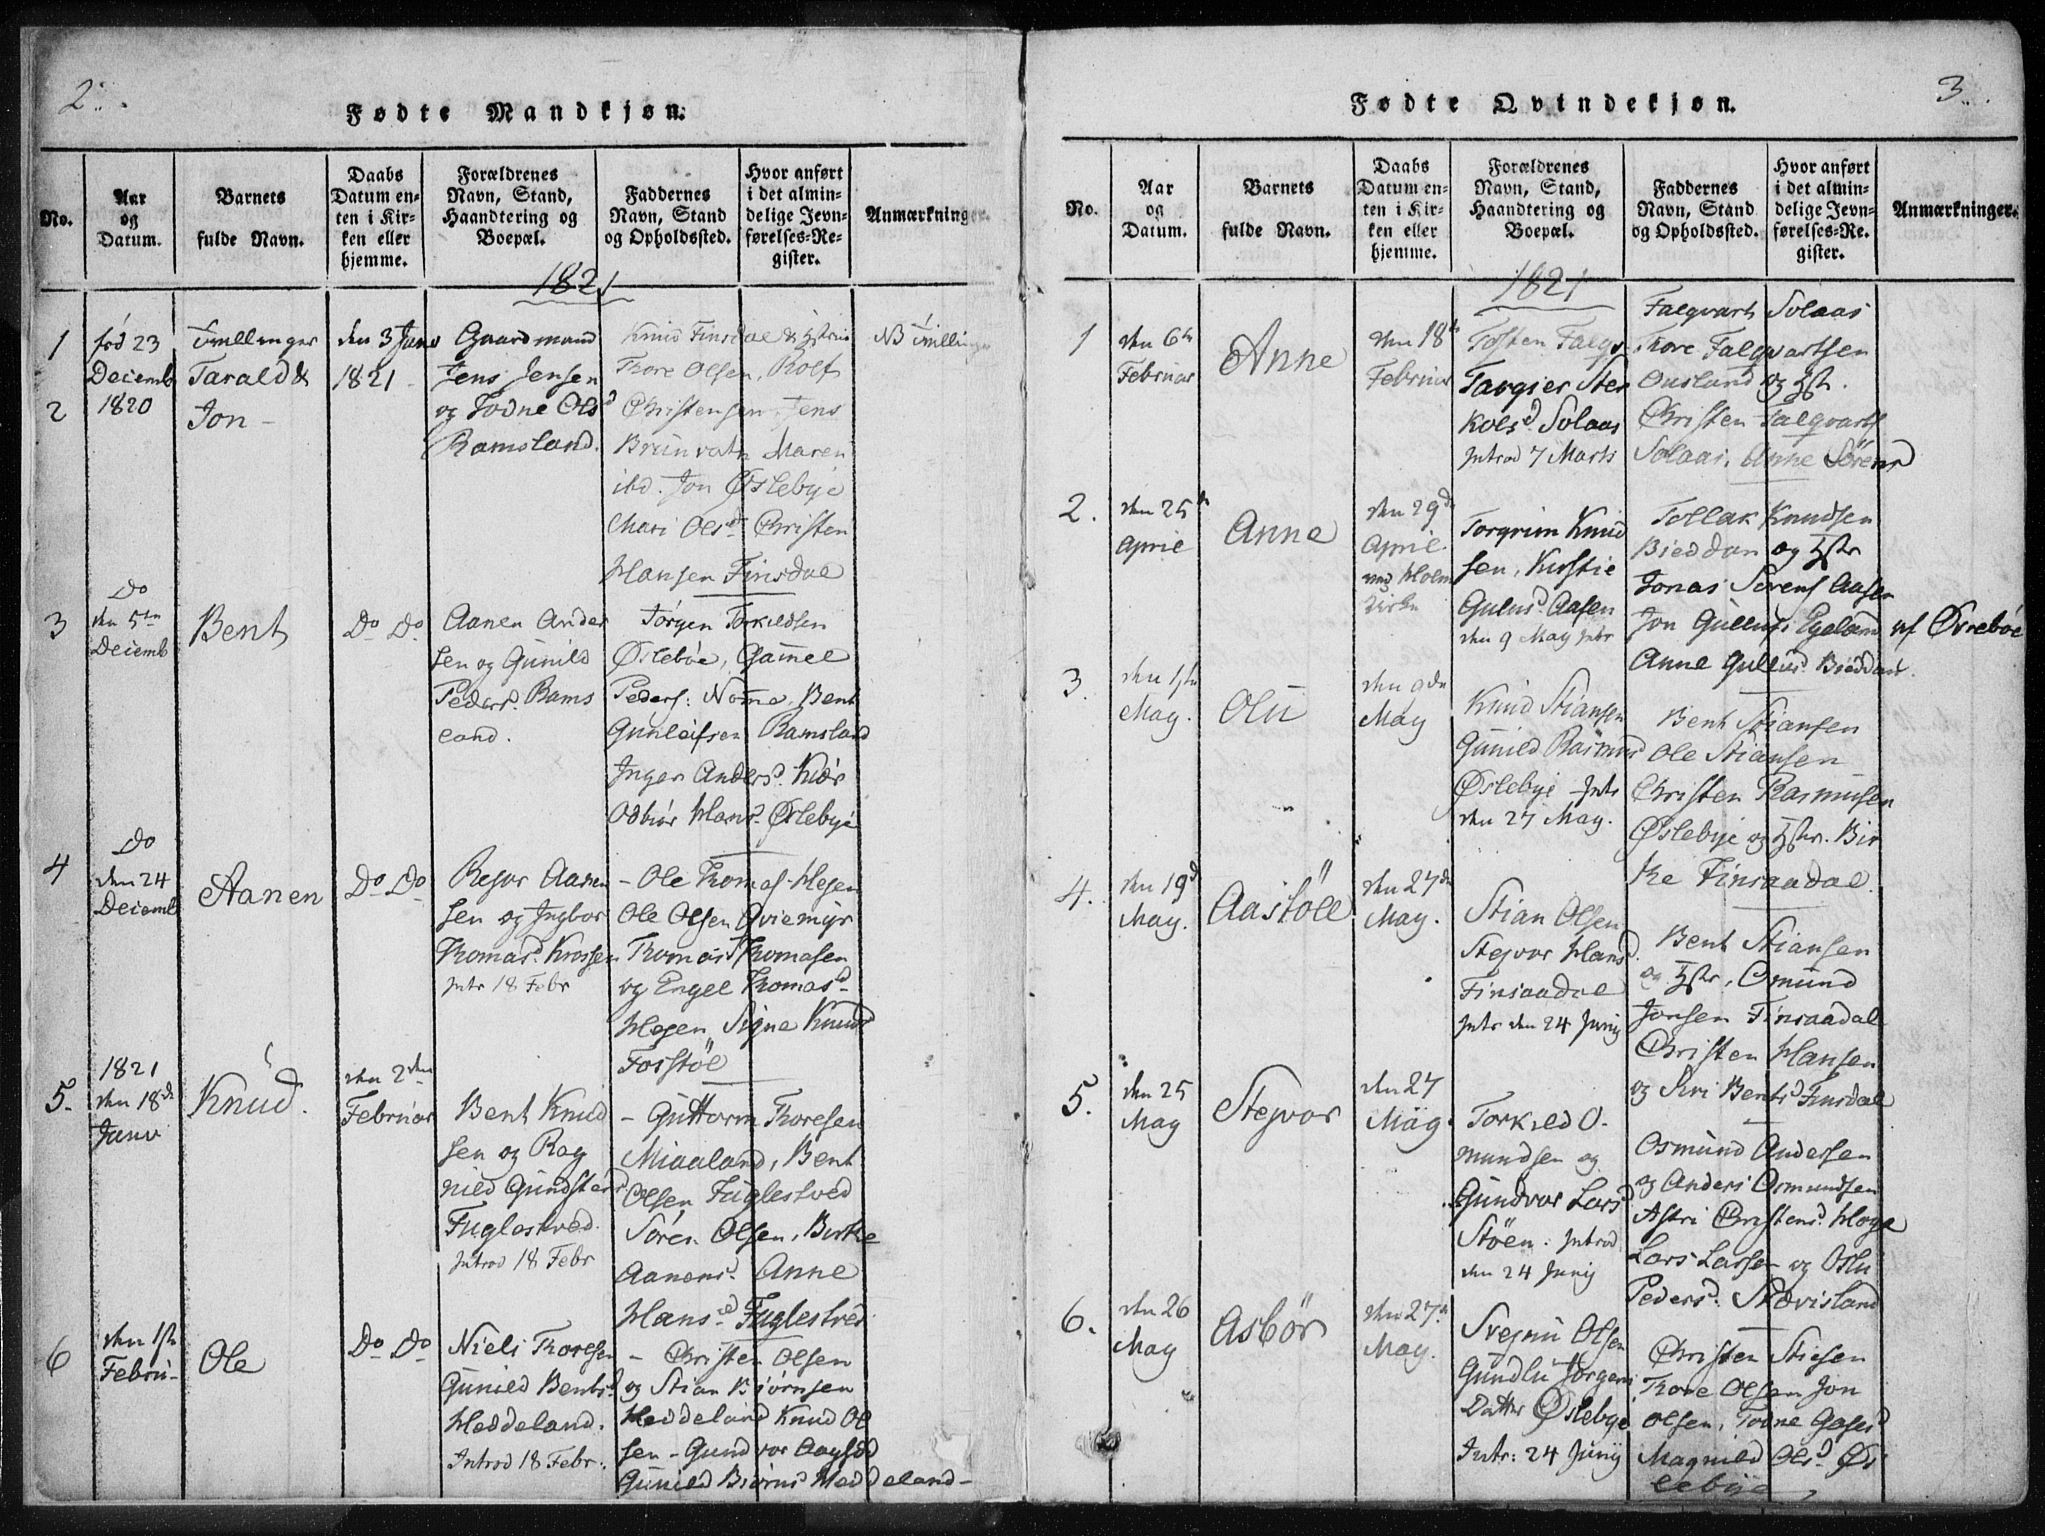 2.
Fødte Mandkjøn.
No.
Aar
og
Datum.
Barnets
fulde Navn.
Daabs
Datum en-
ten i Kir-
ken eller
hjemme.
Forældrenes
Navn, Stand,
Haandtering og
Boepæl.
Faddernes
Navn, Stand
og Opholdssted.
Hvor anført
i det almin-
delige Jevn-
førelses-Re-
gister.
Anmærkninger.
1821
1
2
fød 23
Decemb
1820
Tvillinger
Tarald &
Jon -
den 3 Janv
1821 -
Gaardmand
Jens Jensen
og Todne Olsd
Ramsland.
Knud Finsdal &
Thore Olsen, Rolf
Christensen, Jens
Brunvatn Maren
ibd. Jon Øslebye
Mari Olsd Christen
Hansen Finsdal
NB Tvillinger
3
Do
den 5te
Decemb
Bent
Do Do
Aanen Ander
sen og Gunild
Peders. Rams
land.
Jørgen Torkildsen
Øslebøe, Gamel
Peders: Nome. Bent
Gunleifsen Ramsland
Inger Andersd Kiær
Odbiør Hans. Øslebye
4
Do
den 24
Decemb
Aanen
Do Do
Rejar Aanen
sen og Ingbor
Thomasd. Krossen
Intr 18 Febr
- Ole Thomas. Hegen
Ole Olsen Qviemyr
Thomas Thomasen
og Engel Thomasd
Hegen Signe Knuds
Fosstøl
5.
1821
den 18de
Janv
Knud.
den 2den
Februar
Bent Knud
sen og Rag
nild Gundsters
Fuglestved.
Introd 18 Febr
- Guttorm Thoresen
Miaaland, Bent
Olsen Fuglestved
Søren Olsen, Birthe
Aanensd. Anne
Hansd. Fuglestved
6
den 1ste
Febru-
Ole
Do Do
Niels Thoresen
Gunild Bentsd
Heddeland.
Introd 18 Febr.
- Christen Olsen
og Stian Biørnsen
Heddeland Knud Ol
sen - Gundvor Aagsdd
Gunild Biørns Heddeland -
3.
Fødte Qvindekjøn.
No.
Aar
og
Datum.
Barnets
fulde Navn.
Daabs
Datum en-
ten i Kir-
ken eller
hjemme.
Forældrenes
Navn, Stand,
Haandtering og
Boepæl.
Faddernes
Navn, Stand
og Opholdssted.
Hvor anført
i det almin-
delige Jevn-
førelses-Re-
gister.
Anmærkninger.
1821
1
den 6te
Februar
Anne
den 18de
Februar
Tosten Falqv
Targier Ster
kolsd. Solaas
Introd 7 Marts
Falqvart Solaas
Thore Falqvartsen
Ousland og
Christen Falqvarts
Solaas. Anne Sørensd
2.
den 25de
April
Anne
den 29de
April
ved Holm
Kirke
Torgrim Knud
sen, Kirstie
Gulusd. Aasen
den 9 May Intr
Tollak Knudsen
Bieddan og
Jonas Sørens Aasen
Jon Gullufs Egeland af Øvrebøe
Anne Gullusd. Bieddan.
3.
den 1ste
May.
Olu
den 9de
May
Knud Stiansen
Gunild Rasmusd
Øslebye - Intr
den 27 May.
Bent Stiansen
Ole Stiansen
Christen Rasmusen
Øslebye og Bir
the Finsaadal.
4.
den 19de
May.
Aastøll
den 27de
May.
Stian Olsen
Stejvor Hansd.
Finsaadal
Intr den 24 Junij
Bent Stiansen
og Osmund
Jonsen Finsaadal
Christen Hansen
og Siri Bentsd Finsdal
5.
den 25
May
Stejvor
den 27
May.
Torkild O-
mundsen og
Gundvor Larsd
Støen. Introd
den 24 Junij
Osmund Andersen
og Anders Osmundsen
Astri Christensd. Hoye
Lars Larsen og Oslu
Pedersd. Skovisland
6.
den 26
May
Asbør
den 27de
May.
Svejnu Olsen
Gundlu Jørgens
Datter Øslebye
Intr: 24 Junij
Christen Stiesen
Thore Olsen Jon
Olsen, Todne Gafsd
Magnild Olsd. Øs
lebye,